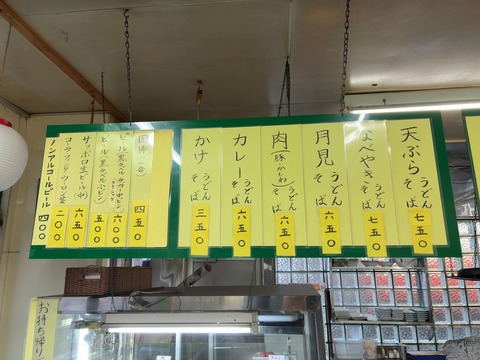 天ぷら うどん そば 七五〇
なべやき うどん そば 七五〇
月見 うどん そば 六五〇
肉(豚 かしわ) うどん そば 六五〇
カレー うどん そば 六五〇
かけ うどん そば 三五〇
四五〇
六〇〇
ビール(黒ラベル小ビン) 五〇〇
サッポロ生ビール(中) 六五〇
二〇〇
ノンアルコールビール 四〇〇
お持ち帰り